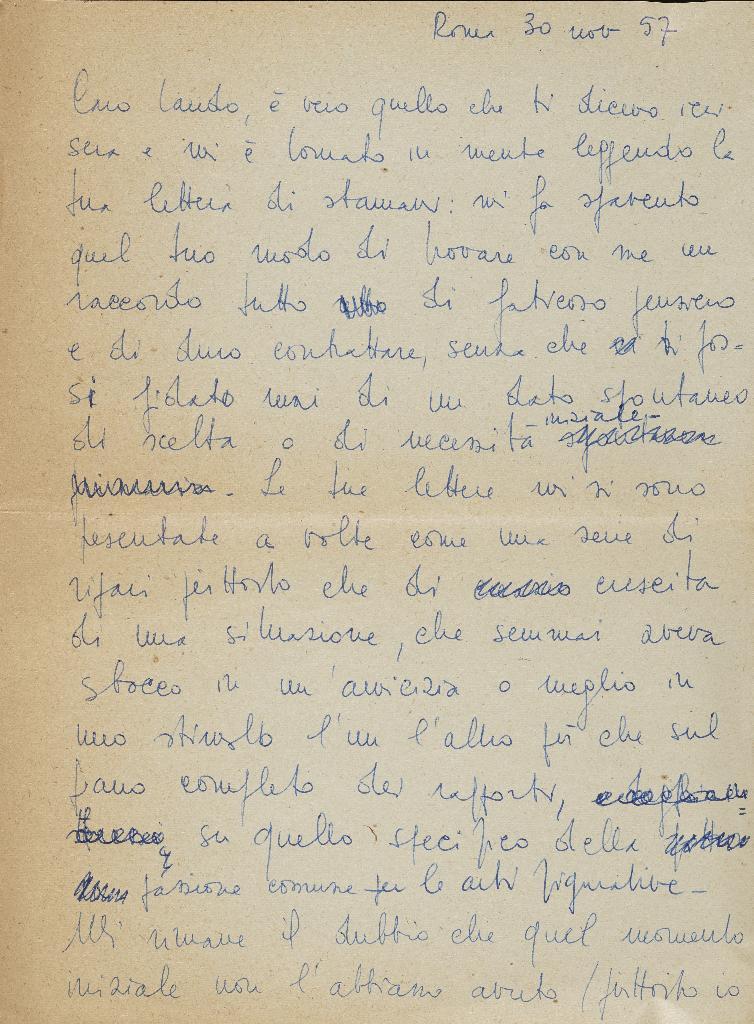 Roma 30 nov 57
Caro Lando, è vero quello che ti dicevo ieri
sera e mi è tornato in mente leggendo la
tua lettera di stamani: mi fa spavento
quel tuo modo di trovare con me un
raccordo tutto di faticoso pensiero
e di duro contrattare, senza che ti fos-
si fidato mai di un dato spontaneo
di scelta o di necessità iniziale-
- Le tue lettere mi si sono
presentate a volte come una serie di
rifari piuttosto che di crescita
di una situazione, che semmai aveva
sbocco in un'amicizia o meglio in
uno stimolo l'un l'altro più che sul
piano completo dei rapporti,
su quello specifico della
passione comune per le arti figurative-
Mi rimane il dubbio che quel momento
iniziale non l'abbiamo avuto (piuttosto io